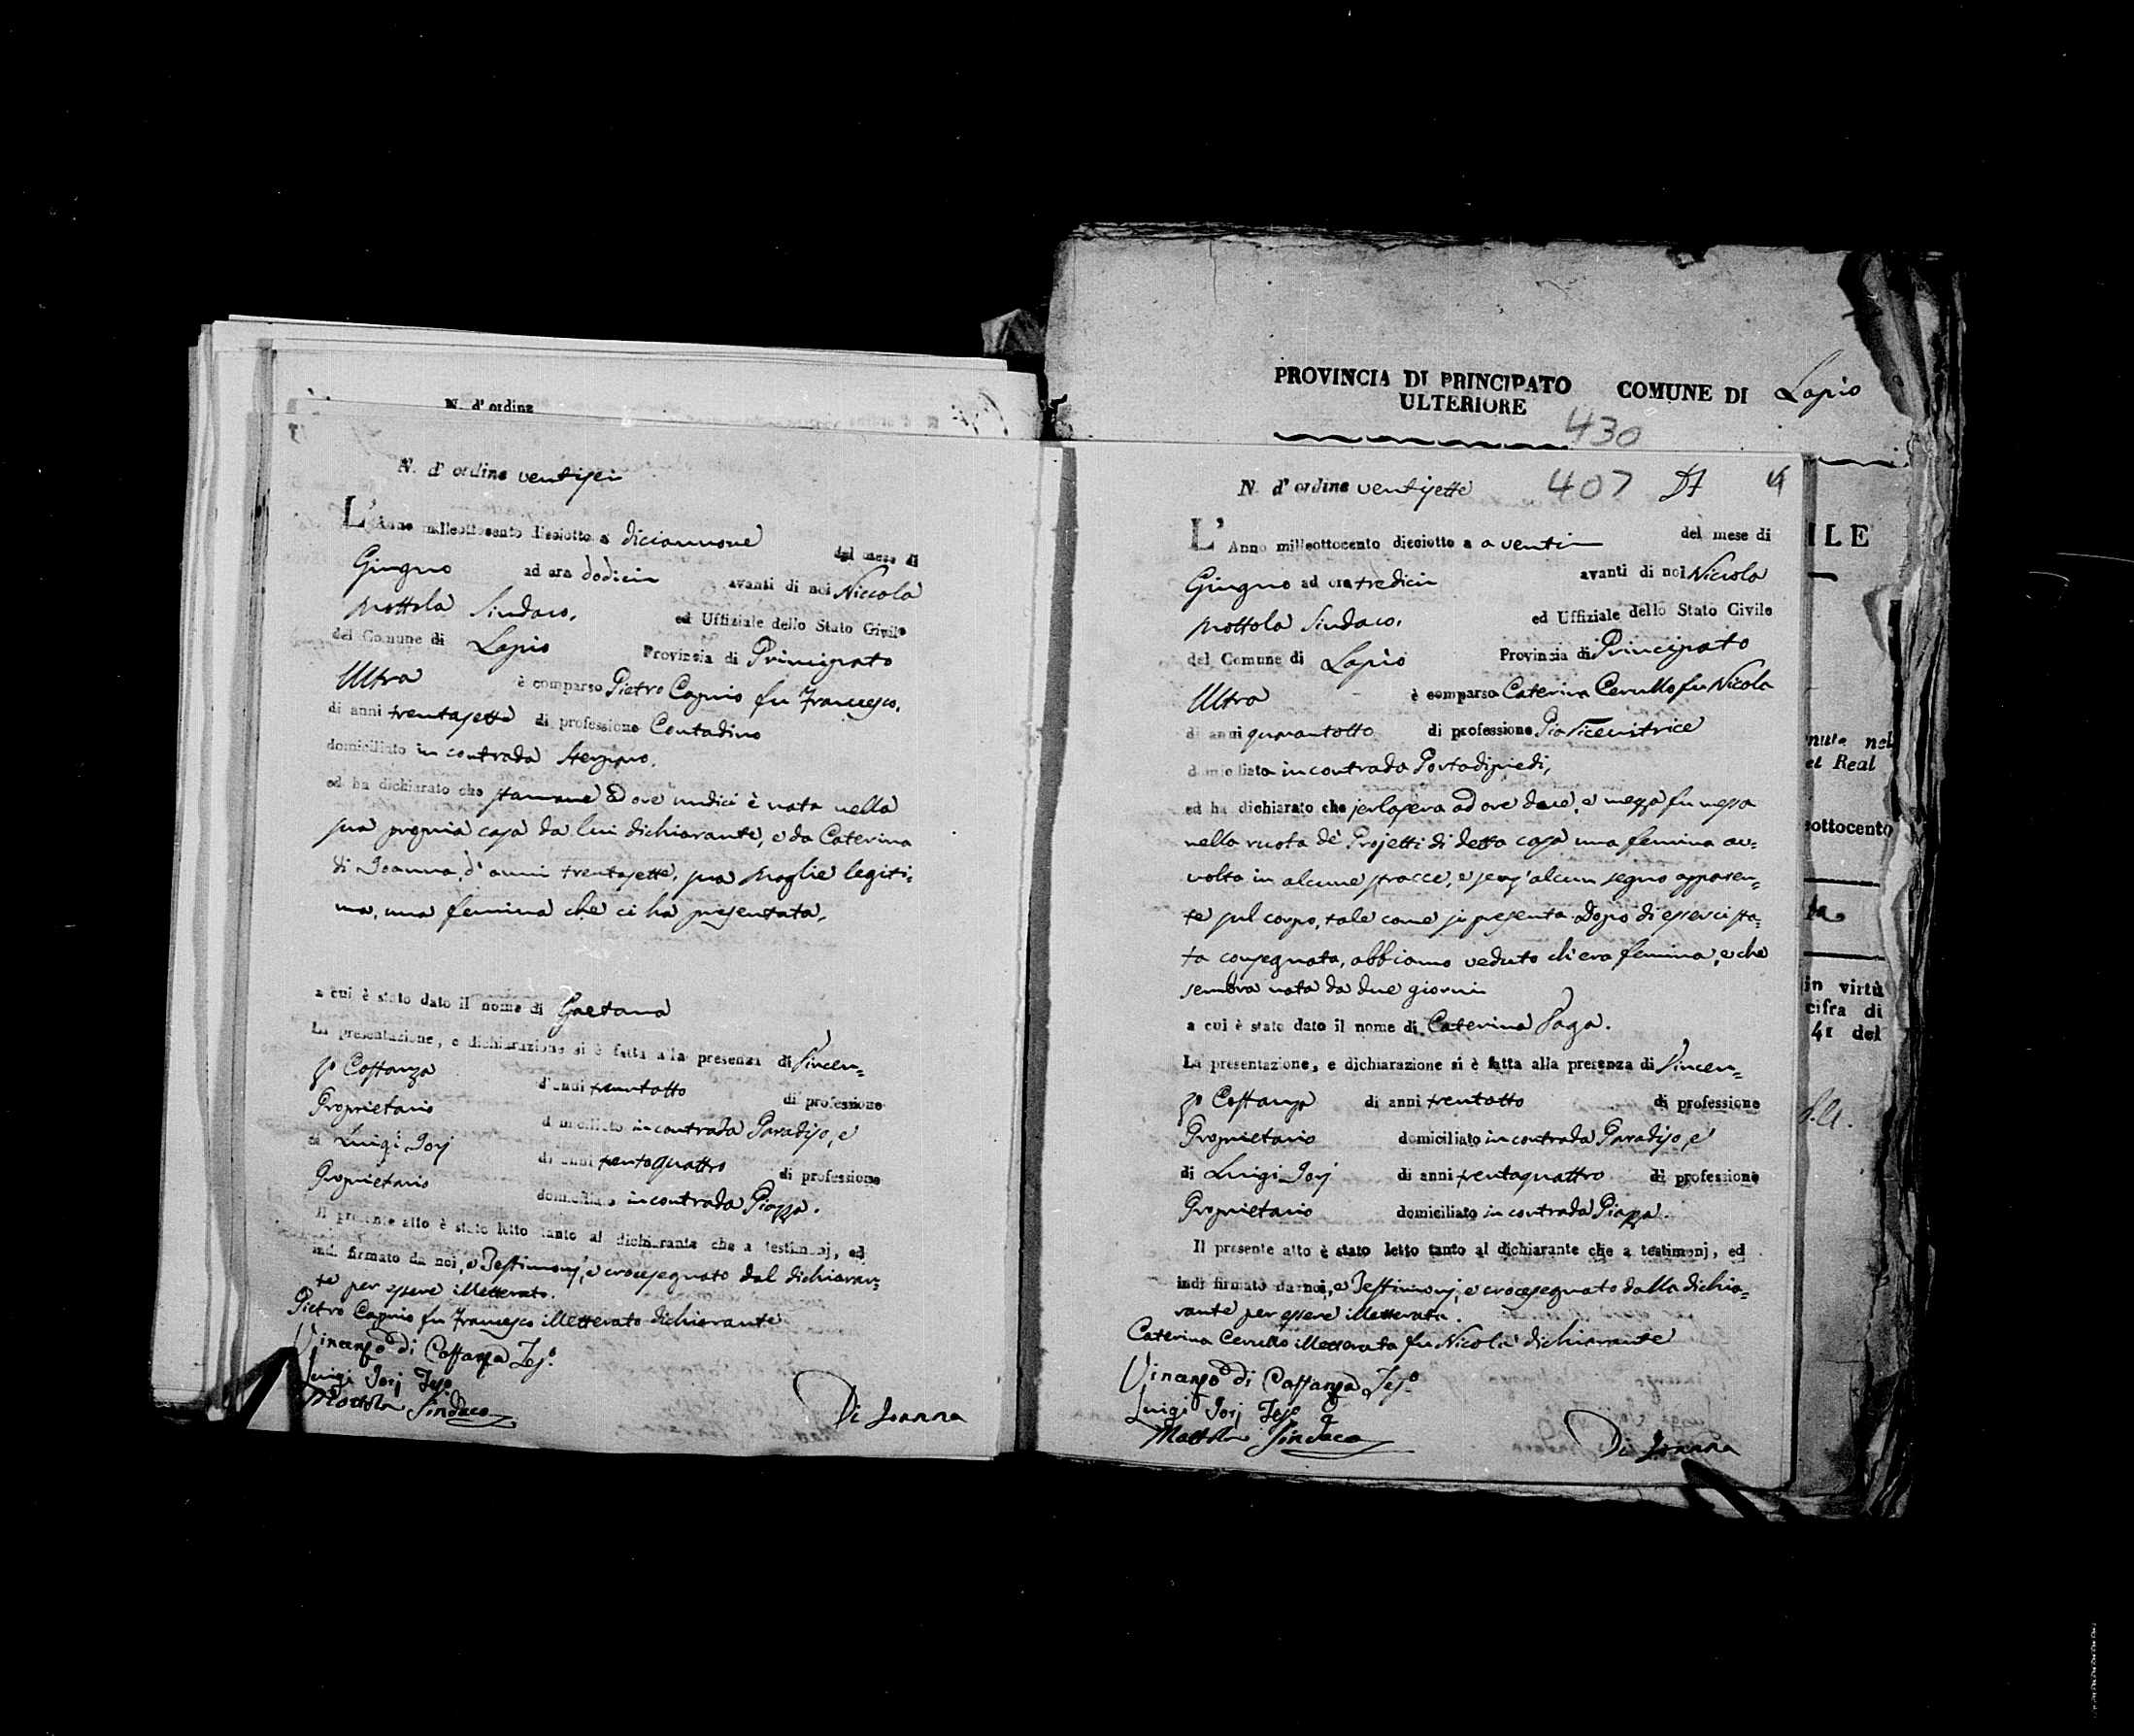 N. d' ordine
N. d' ordine ventisei
L'Anno milleottocento dieciotto a diciannove del mese di
Giugno ad ora dodici avanti di noi Niccola
Mottola Sindaco, ed Uffiziale dello Stato Civile
del Comune di Lapio Provincia di Principato
Ultra è comparso Pietro Caprio fu Francesco,
di anni trentasette di professione Contadino
domiciliato in contrada
ed ha dichiarato che stamane ad ore undici è nata nella
sua propria casa da lui dichiarante, e da Caterina
di Joanna, d'anni trentasette, sua Moglie legiti=
ma, una femina che ci ha presentata,
a cui è stato dato il nome di Gaetana
La presentazione, e dichiarazione si è fatta alla presenza di Vincen=
zo Costanza d'anni trentotto di professione
Proprietario domiciliato in contrada Paradiso, e
di Luigi Jorj di anni trentaquattro di professione
Proprietario domiciliato in contrada Piazza.
Il presente atto è stato letto tanto al dichiarante che a testimonj, ed
indi firmato da noi, e Testimonj, e crocesegnato dal dichiaran=
te per essere illetterato.
Pietro Caprio fu Francesco illetterato dichiarante
Vincenzo di Costanza Teso.
Luigi Jorj Teso
Mottola Sindaco
Di Joanna
PROVINCIA DI PRINCIPATO COMUNE DI Lapio
ULTERIORE
430
N. d' ordine ventisette 407
L'Anno milleottocento dieciotto a a venti del mese di
Giugno ad ora tredici avanti di noi Niccola
Mottola Sindaco, ed Uffiziale dello Stato Civile
del Comune di Lapio Provincia di Principato
Ultra è comparsa Caterina Cerullo fu Nicola
di anni quarantotto di professione Pia Ricevitrice
domiciliata in contrada Portadipiedi,
ed ha dichiarato che jerlasera ad ore due, e mezza fu messa
nella ruota de' Projetti di detta casa una femina av=
volta in alcune stracce, e senz'alcun segno apparen=
te sul corpo, tale come si presenta. Dopo di esserci sta=
ta consegnata, abbiamo veduto ch'era femina, e che
sembra nata da due giorni
a cui è stato dato il nome di Caterina Paga.
La presentazione, e dichiarazione si è fatta alla presenza di Vincen=
zo Costanza di anni trentotto di professione
Proprietario domiciliato in contrada Paradiso, e
di Luigi Jorj di anni trentaquattro di professione
Proprietario domiciliato in contrada Piazza.
Il presente atto è stato letto tanto al dichiarante che a testimonj, ed
indi firmato da noi, e Testimonj, e crocesegnato dalla dichia=
rante per essere illetterata.
Caterina Cerullo illetterata fu Nicola dichiarante
Vincenzo di Costanza Teso
Luigi Jorj Teso
Mottola Sindaco
Di Joanna
ILE
nute nel
el Real
sottocento
in virtù
cifra di
41 del